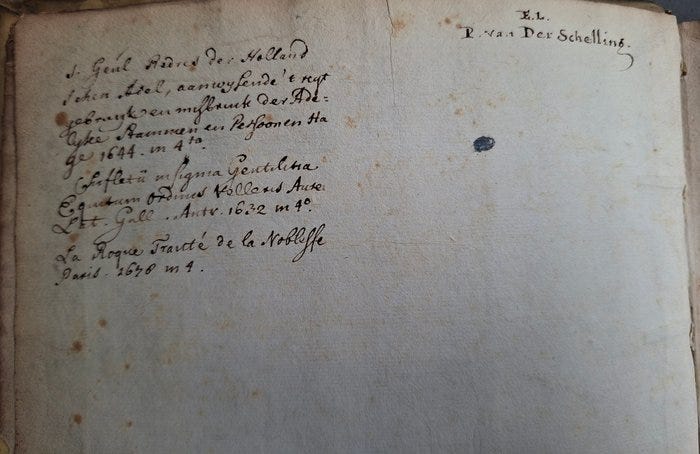 E.L.
P. van Der Schelling.
J. Geul Redres der Holland
schen Adel, aanwysende 't regt
gebruyk en misbruik der Ade-
lyke Stammen en Persoonen Ha
ge 1644. in 4to.
Chifletii insignia Gentilitia
Equitum ordinis Velleris Aurei
Lat. Gall. Antv. 1632 in 4°.
La Roque Traitté de la Noblesse
Paris. 1678 in 4.